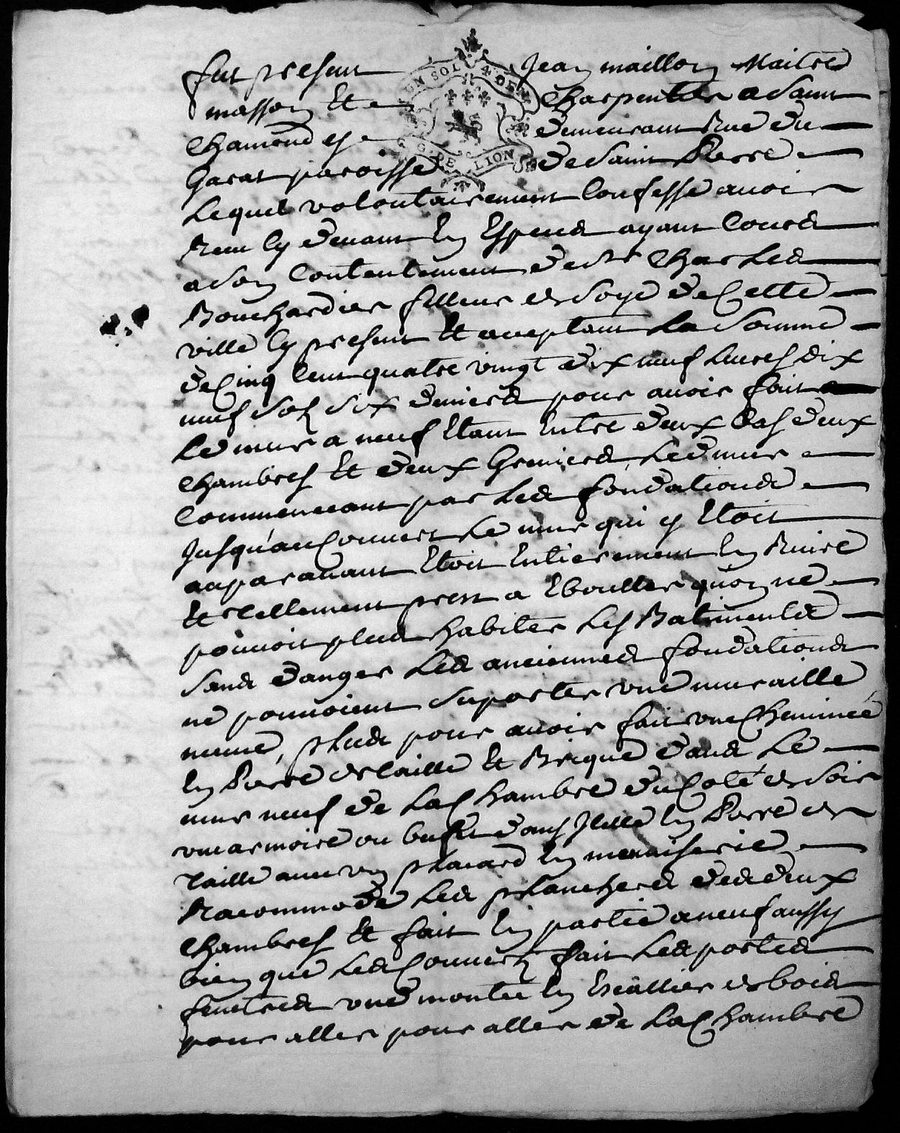 fut present Jean maillon Maitre
masson Et Charpentier a Saint
Chamond y demeurant Rue du
Garat paroisse de Saint Pierre
Lequel volontairement Confesse avoir
Reçu cy devant En Espece ayant Cours
a Son Contentement de Sr Charles
Bouchardier filleur de Soye de Cette
ville cy present Et aceptant La Somme
de Cinq Cent quatre vingt dix neuf Livres dix
neuf Sols Six deniers pour avoir fait
Le mur a neuf Etant Entre deux bas deux
Chambres Et deux Greniers, Le d mur
Commencant par Les fondations
Jusqu'au Couvert Le mur qui y Etoit
auparavant Etoit Entierement En Ruine
Et tellement prest a Eboulter quon ne
pouvoit plus habiter Les Batiments
Sans danger Les anciennes fondations
ne pouvoient Suporter une muraille
neuve, plus pour avoir fait une Cheminée
En Pierre de taille Et Brique dans Le
mur neuf de La Chambre du Coté de Soir
une armoire ou bufet dans Icelle En Pierre de
taille avec un placard En menuiserie
Racommodé Les planchers des deux
Chambres Et fait En partie a neuf aussy
bien que Les Couvert fait Les portes
fenetres une montée En Escallier de bois
pour aller pour aller de La Chambre
UN SOL 4 DEN
G. DE LION